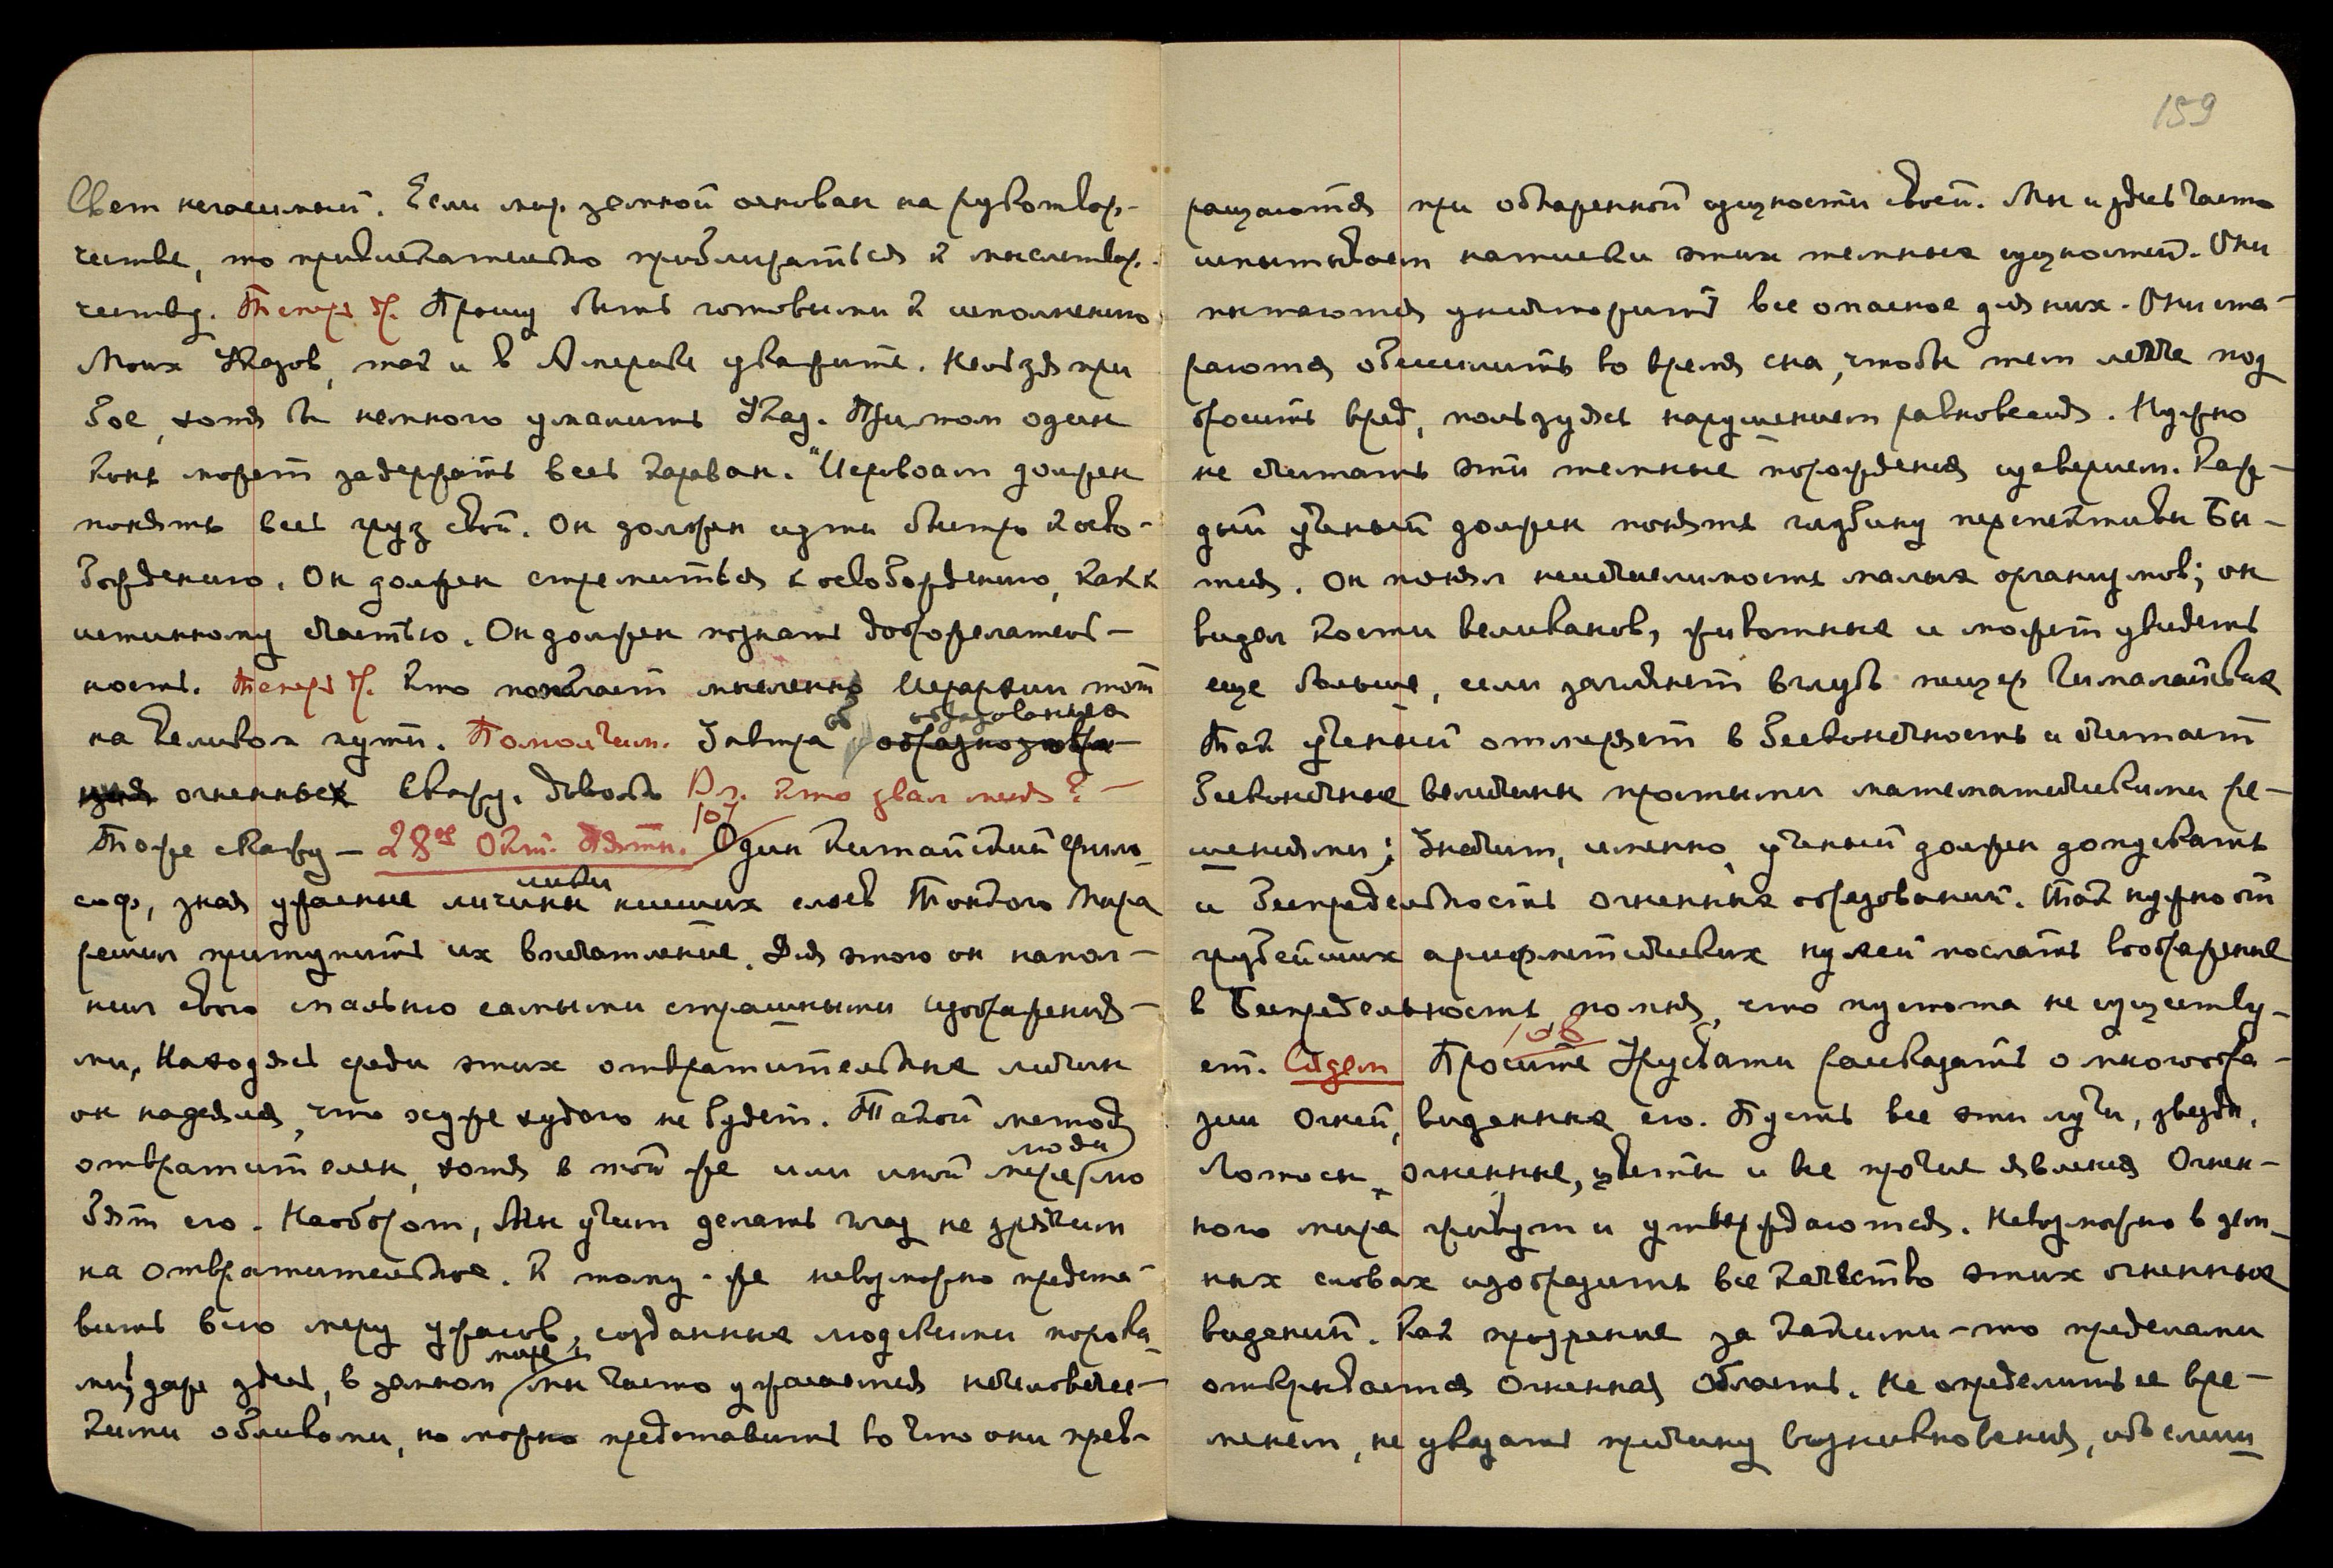 Свет негасимый. Если мир земной основан на рукотвор-
честве, то привлекательно приближаться к мыслетвор-
честву. Теперь др. Прошу быть готовыми к исполнению
Моих Указов, так и в Америке укажите. Нельзя при
бое, хотя бы немного умалить Указ. При том один
конь может задержать весь караван. "Иеровоам должен
понять весь груз свой. Он должен идти быстро к осво-
бождению. Он должен стремиться к освобождению, как к
истинному счастью. Он должен познать доброжелатель-
ность. Теперь др. Кто помогает мысленно Иерархии тот
на великом пути. Помолчим. Завтра об образованиях
огненных скажу. Довольно Вл. Кто звал меня? -
Тоже скажу - 28ое Окт. Пятн. 107 Один китайский фило-
соф, зная ужасные личины низших слоев Тонкого Мира
решил притупить их впечатление. Для этого он напол-
нил свою спальню самыми страшными изображения-
ми, Находясь среди этих отвратительных личин
он надеялся, что хуже худого не будет. Такой метод
отвратителен, хотя в той же или иной мере люди лю
бят его. Наоборот, Мы учим делать глаз не зрячим
на отвратительное. К тому-же невозможно предста-
вить всю меру ужасов, созданных людскими порока-
ми, даже здесь, в земном мире мы часто ужасаемся нечеловечес-
кими обликами, но можно представить во что они прев-
159
ращаются при обнаженной сущности своей. Мы и здесь часто
испытываем натиски этих темных сущностей. Они
пытаются уничтожить все опасное для них. Они ста-
раются обессилить во время сна, чтобы тем легче под
бросить вред, пользуясь нарушением равновесия. Нужно
не считать эти темные порождения суеверием. Каж-
дый ученый должен понять глубину перспективы Бы-
тия. Он понял неисчислимость малых организмов; он
видел кости великанов, животных и может увидеть
еще больше, если заглянет вглубь пещер Гималайских
Так ученый отмеряет в Бесконечность и считает
Бесконечные величины простыми математическими ре-
шениями; Значит, именно, ученый должен допускать
и Беспредельность огненных образований. Так нужно от
грубейших арифметических нулей послать воображение
в Беспредельность помня, что пустота не существу-
ет. Сидем 108 Просите Урусвати рассказать о многообра-
зии Огней, виденных ею. Пусть все эти лучи, звезды,
Лотосы, огненные, цветы и все прочие явления Огнен-
ного мира живут и утверждаются. Невозможно в зем-
ных словах изобразить все качество этих огненных
видений. Как прозрение за какими-то пределами
открывается Огненная область. Не определить ее вре-
менем, не указать причину возникновения, ибо слиш